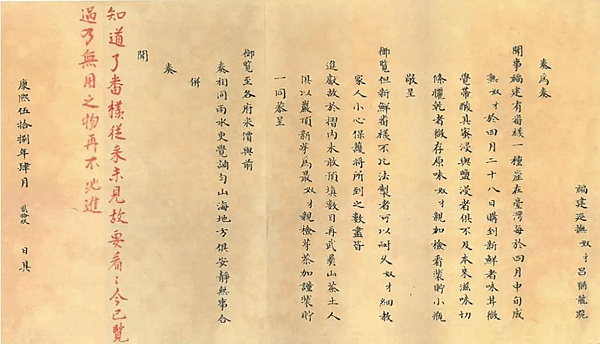 福建巡撫奴才呂猶龍跪
奏為奏
聞事福建有番檨一種產在臺灣每於四月中旬成
熟奴才於四月二十八日購到新鮮者味甘微
覺帶酸其蜜浸與鹽浸者俱不及本來滋味切
條曬乾者微存原味奴才親加檢看裝貯小瓶
敬呈
御覽但新鮮番檨不比法製者可以耐久奴才細教
家人小心保護將所到之數盡皆
進獻故於摺內未敢預填數目再武彝山茶土人
俱以巖頂新芽為最奴才親檢芽茶加謹裝貯
一同恭呈
御覽至各府米價與前
奏相同雨水更覺調勻山海地方俱安靜無事合
併
奏
聞
知道了番樣從來未見故要看々今已覽
過乃無用之物再不必進
康熙伍拾捌年肆月 貳拾玖 日具